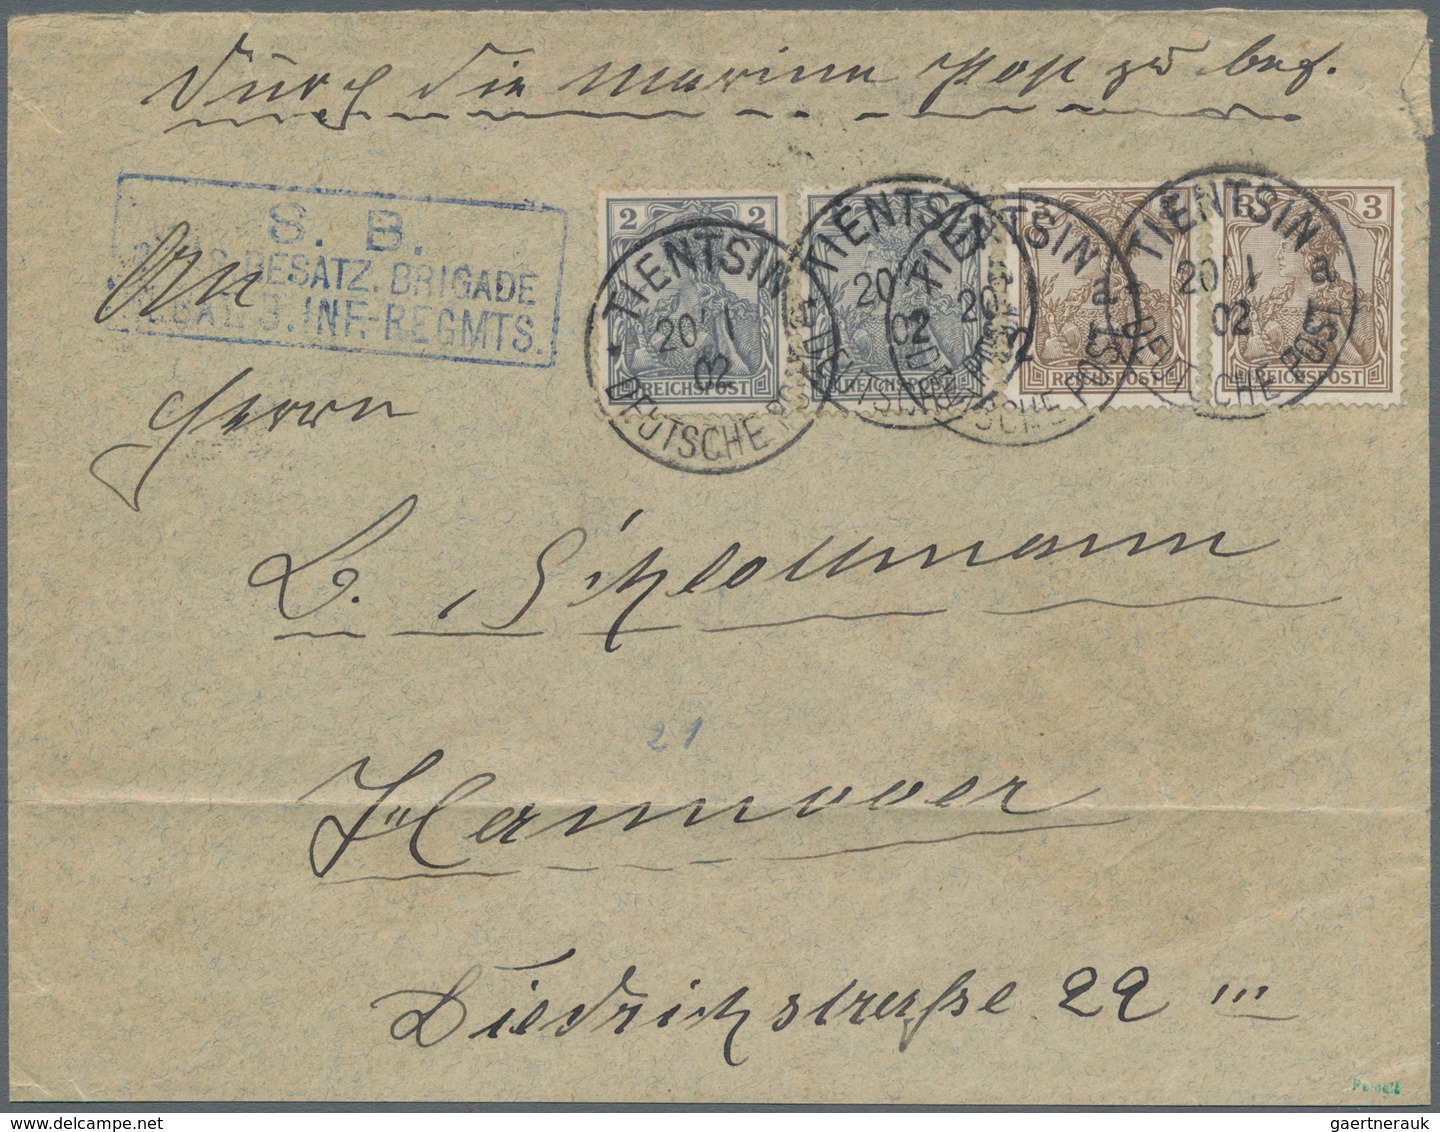 Durch die Marine Post zu bef.
S. B.
OSTAS. BESATZ. BRIGADE
3. INF.-REGMTS.
An
Herrn
2 2 3 3
TIENTSIN TIENTSIN TIENTSIN TIENTSIN
20 1 02 20 02 20 a 20 1 02 a
DEUTSCHE POST DEUTSCHE POST DEUTSCHE POST DEUTSCHE POST
REICHSPOST REICHSPOST REICHSPOST REICHSPOST
L. Schlottmann
21
Hannover
Diedrichstraße 22 III
gaertnerauk / delcampe.net